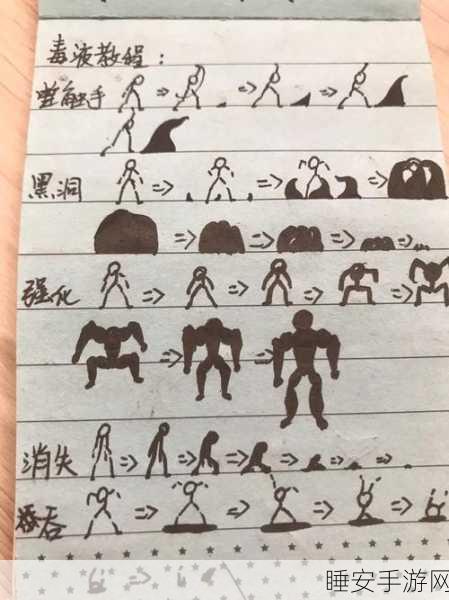 毒液教程:
触手
黑洞
强化
消失
吞
睡安手游网